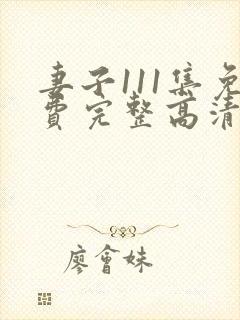 妻子111集免
費完整高清
廖會妹